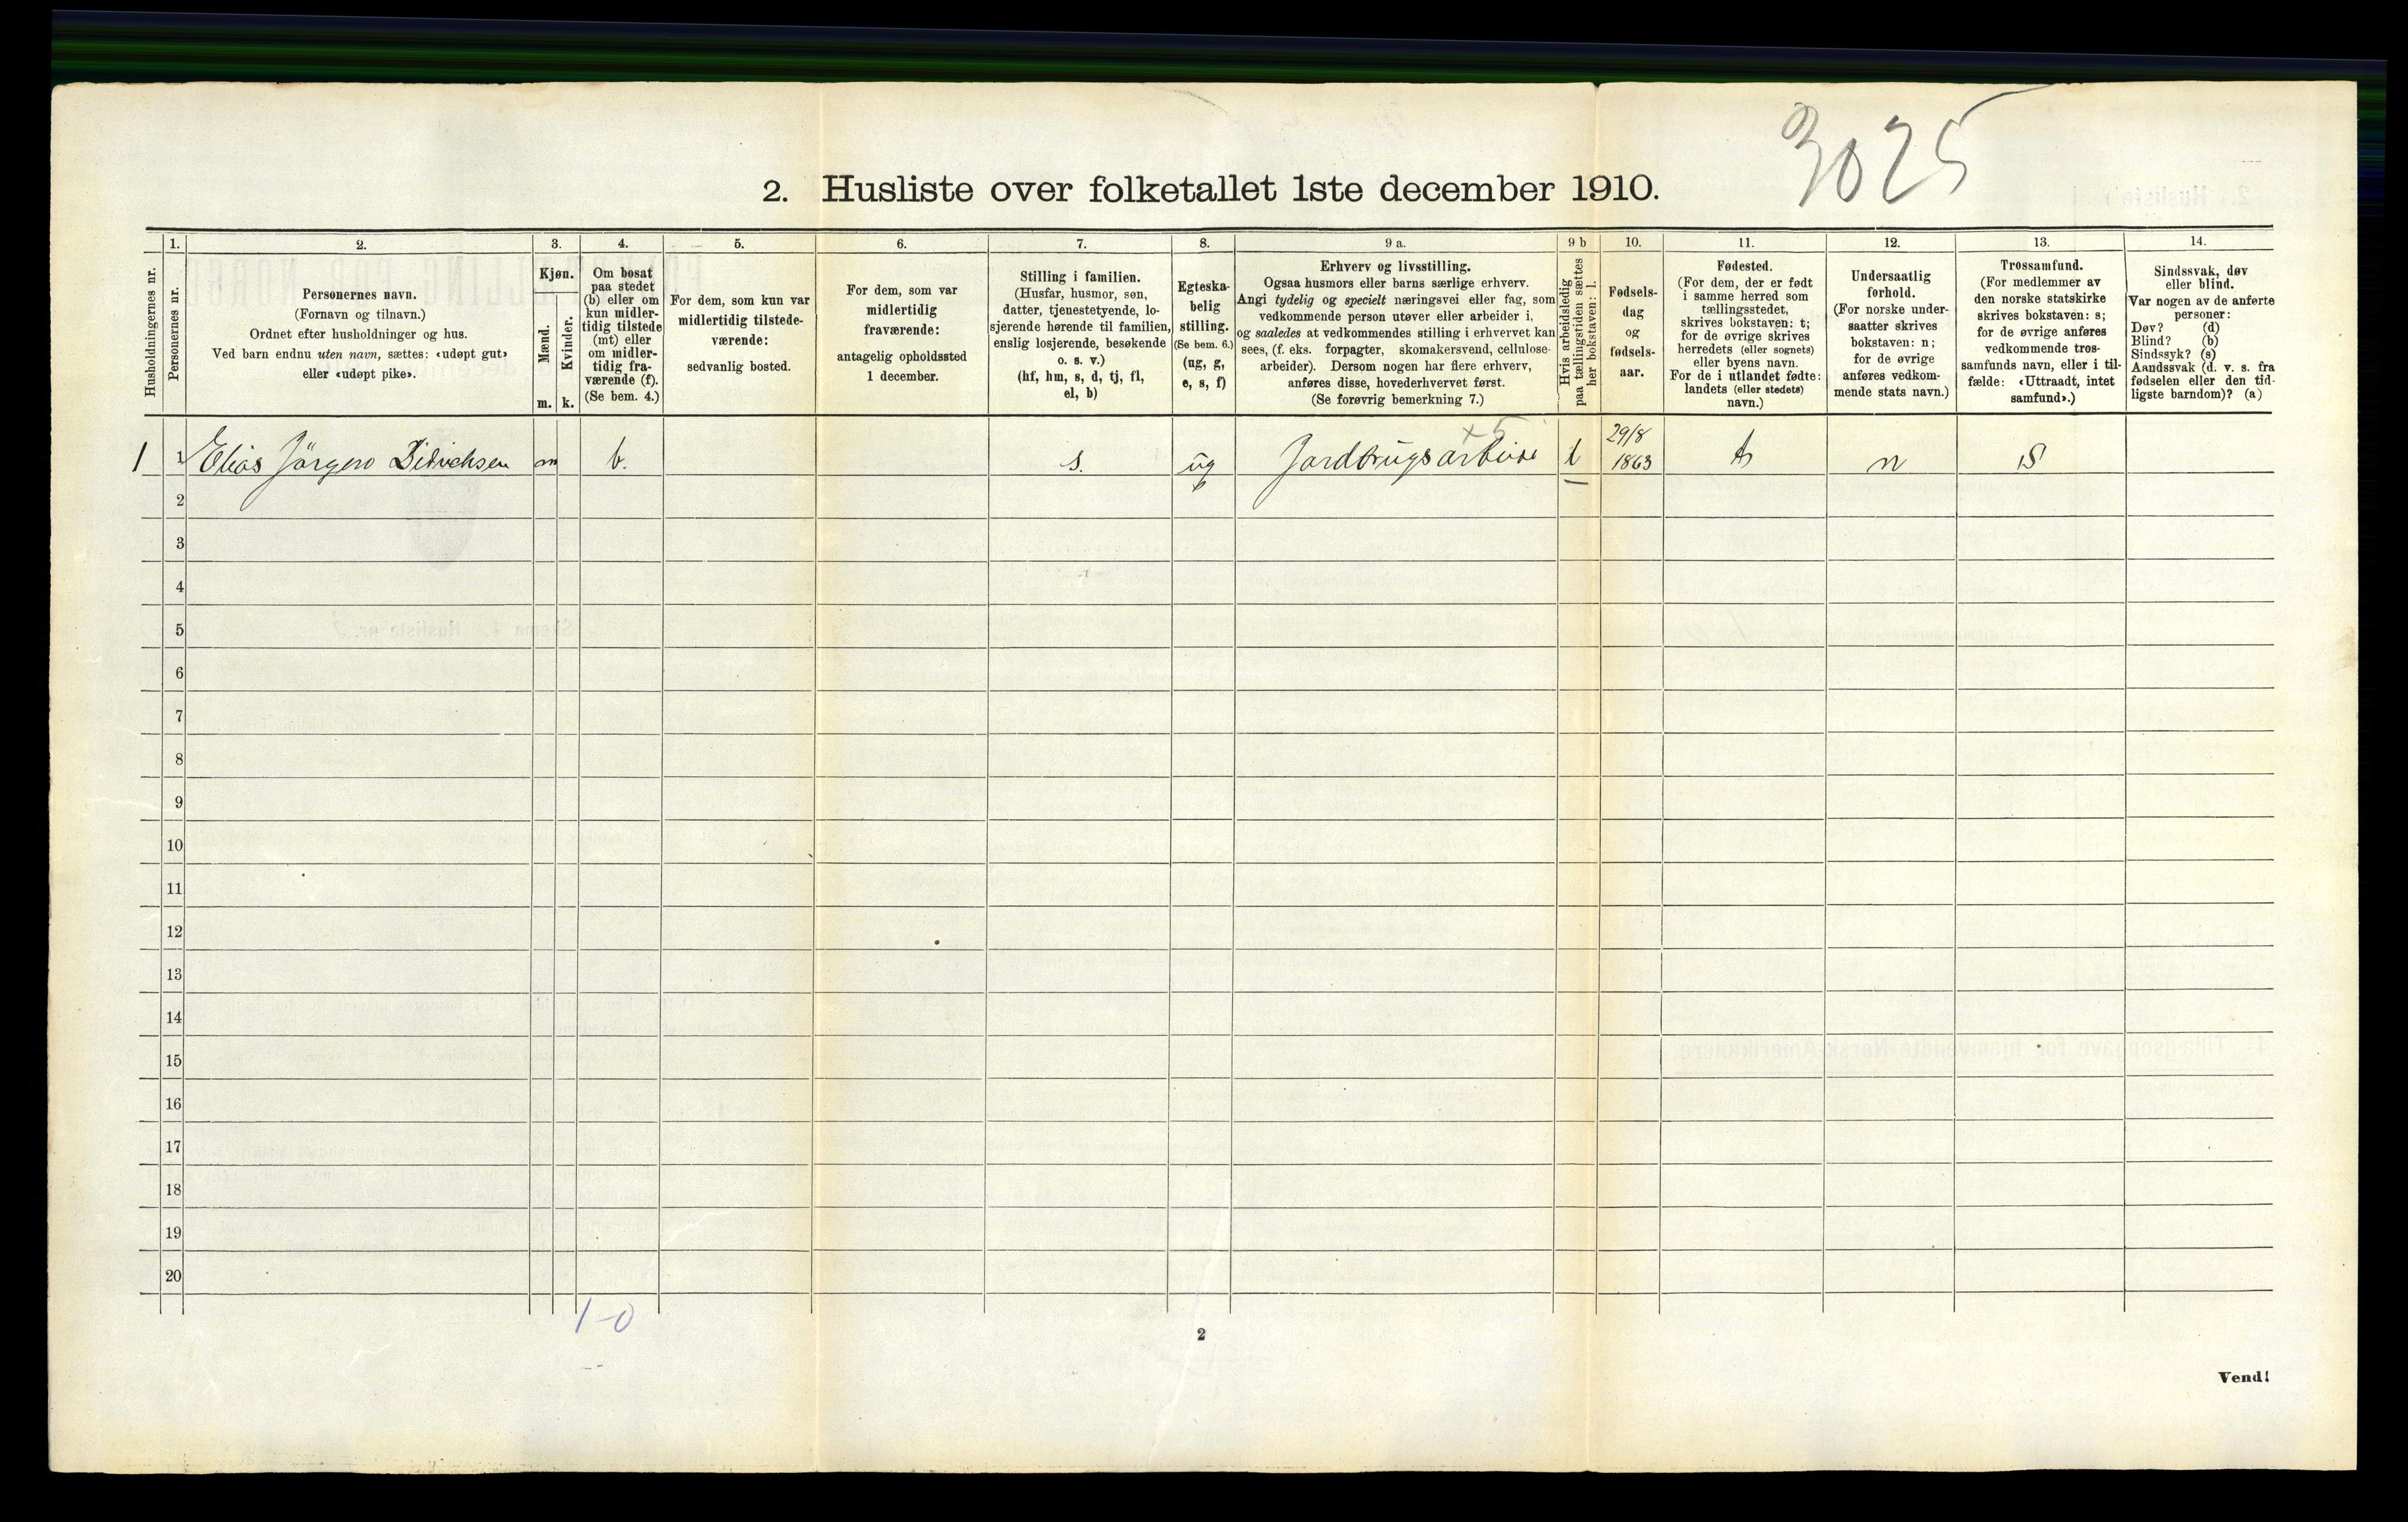 3025
2. Husliste over folketallet 1ste december 1910.
Husholdningernes nr.
1.
Personernes nr.
2.
Personernes navn.
(Fornavn og tilnavn.)
Ordnet efter husholdninger og hus.
Ved barn endnu uten navn, sættes: «udøpt gut»
eller «udøpt pike».
3.
Kjøn.
Mænd.
Kvinder.
m. k.
4.
Om bosat
paa stedet
(b) eller om
kun midler-
tidig tilstede
(mt) eller
om midler-
tidig fra-
værende (f).
(Se bem. 4.)
5.
For dem, som kun var
midlertidig tilstede-
værende:
sedvanlig bosted.
6.
For dem, som var
midlertidig
fraværende:
antagelig opholdssted
1 december.
7.
Stilling i familien.
(Husfar, husmor, søn,
datter, tjenestetyende, lo-
sjerende hørende til familien,
enslig losjerende, besøkende
o. s. v.)
(hf, hm, s, d, tj, fl,
el, b)
8.
Egteska-
belig
stilling.
(Se bem. 6.)
(ug, g,
e, s, f)
9 a.
Erhverv og livsstilling.
Ogsaa husmors eller barns særlige erhverv.
Angi tydelig og specielt næringsvei eller fag, som
vedkommende person utøver eller arbeider i,
og saaledes at vedkommendes stilling i erhvervet kan
sees, (f. eks. forpagter, skomakersvend, cellulose-
arbeider). Dersom nogen har flere erhverv,
anføres disse, hovederhvervet først.
(Se forøvrig bemerkning 7.)
9 b
Hvis arbeidsledig
paa tællingstiden sættes
her bokstaven: l.
10.
Fødsels-
dag
og
fødsels-
aar.
11.
Fødested.
(For dem, der er født
i samme herred som
tællingsstedet,
skrives bokstaven: t;
for de øvrige skrives
herredets (eller sognets)
eller byens navn.
For de i utlandet fødte:
landets (eller stedets)
navn.)
12.
Undersaatlig
forhold.
(For norske under-
saatter skrives
bokstaven: n;
for de øvrige
anføres vedkom-
mende stats navn.)
13.
Trossamfund.
(For medlemmer av
den norske statskirke
skrives bokstaven: s;
for de øvrige anføres
vedkommende tros-
samfunds navn, eller i til-
fælde: «Uttraadt, intet
samfund».)
14.
Sindssvak, døv
eller blind.
Var nogen av de anførte
personer:
Døv? (d)
Blind? (b)
Sindssyk? (s)
Aandssvak (d. v. s. fra
fødselen eller den tid-
ligste barndom)? (a)
x 5
1 1 Elias Jörgen Didrichsen m b. s. ug Jordbrugsarbeide l 29/8 1863 t n S
2
3
4
5
6
7
8
9
10
11
12
13
14
15
16
17
18
19
20
1-0
2
Vend!